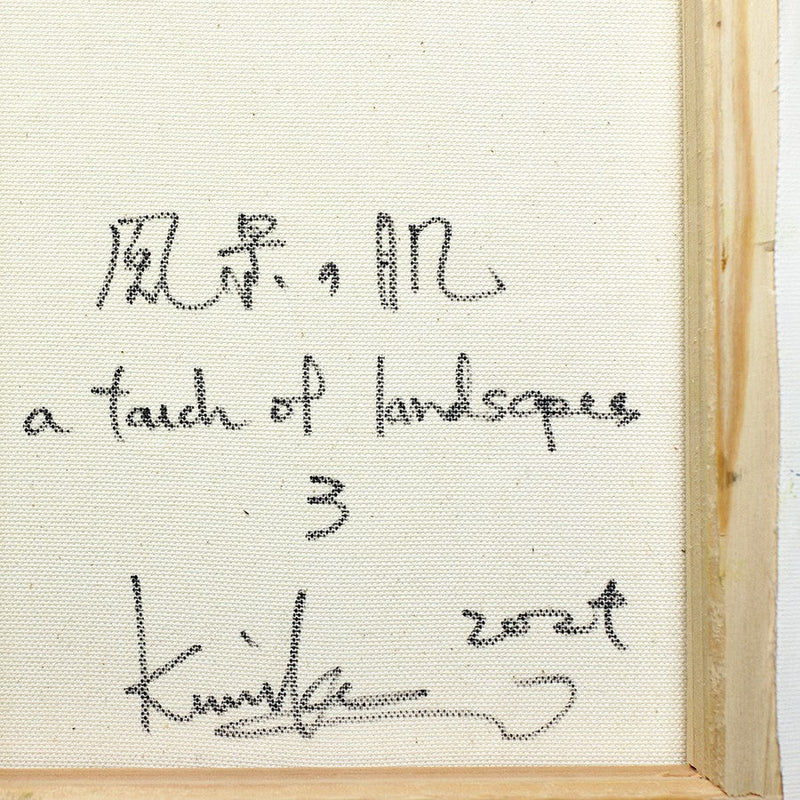 風景，肌
a touch of landscapes
3
2024